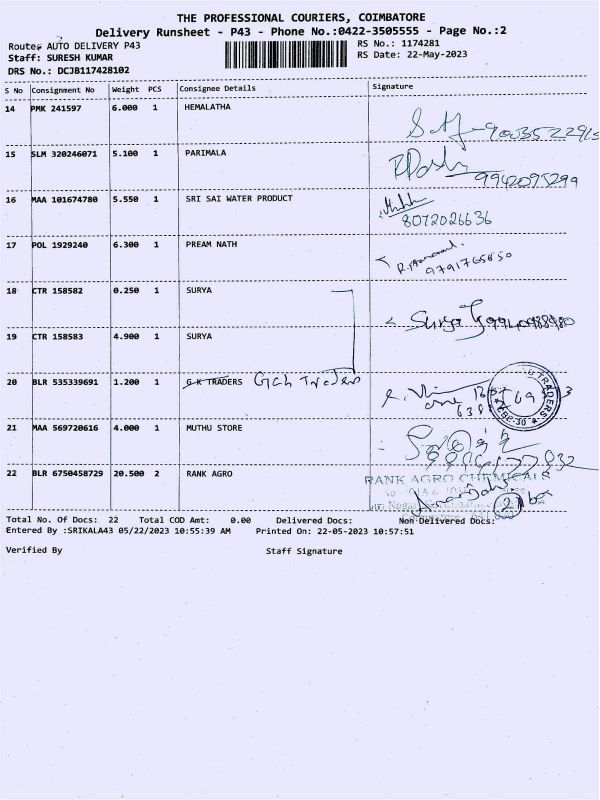 THE PROFESSIONAL COURIERS, COIMBATORE
Delivery Runsheet - P43 - Phone No.:0422-3505555 - Page No.:2
Route: AUTO DELIVERY P43 RS No.: 1174281
Staff: SURESH KUMAR RS Date: 22-May-2023
DRS No.: DCJB117428102
S No Consignment No Weight PCS Consignee Details Signature
14 PMK 241597 6.000 1 HEMALATHA
15 SLM 320246071 5.100 1 PARIMALA
9942095299
16 MAA 101674780 5.550 1 SRI SAI WATER PRODUCT
8072026636
17 POL 1929240 6.300 1 PREAM NATH
9791765850
18 CTR 158582 0.250 1 SURYA
Surya
19 CTR 158583 4.900 1 SURYA
20 BLR 535339691 1.200 1 G K TRADERS Traders
TRADERS
CBE-30
21 MAA 569720616 4.000 1 MUTHU STORE
22 BLR 6750458729 20.500 2 RANK AGRO
RANK AGRO CHEMICALS
Total No. Of Docs: 22 Total COD Amt: 0.00 Delivered Docs: Non Delivered Docs:
Entered By :SRIKALA43 05/22/2023 10:55:39 AM Printed On: 22-05-2023 10:57:51
Verified By Staff Signature